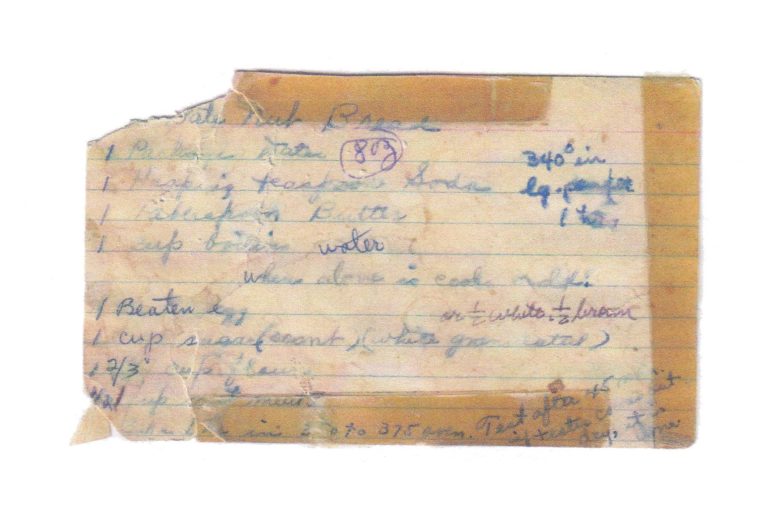 Date Nut Bread
1 Package Dates 8 oz
1 Heaping teaspoon Soda
1 Tablespoon Butter
1 cup boiling water
340° in
lg.
1 hr
when above is cool add:
1 Beaten egg
or ½ white, ½ brown
1 cup sugar (scant) (white
1 2/3 cup flour
1/2 cup
in to 375 oven. Test after 45
if tester comes out
dry, it is
done